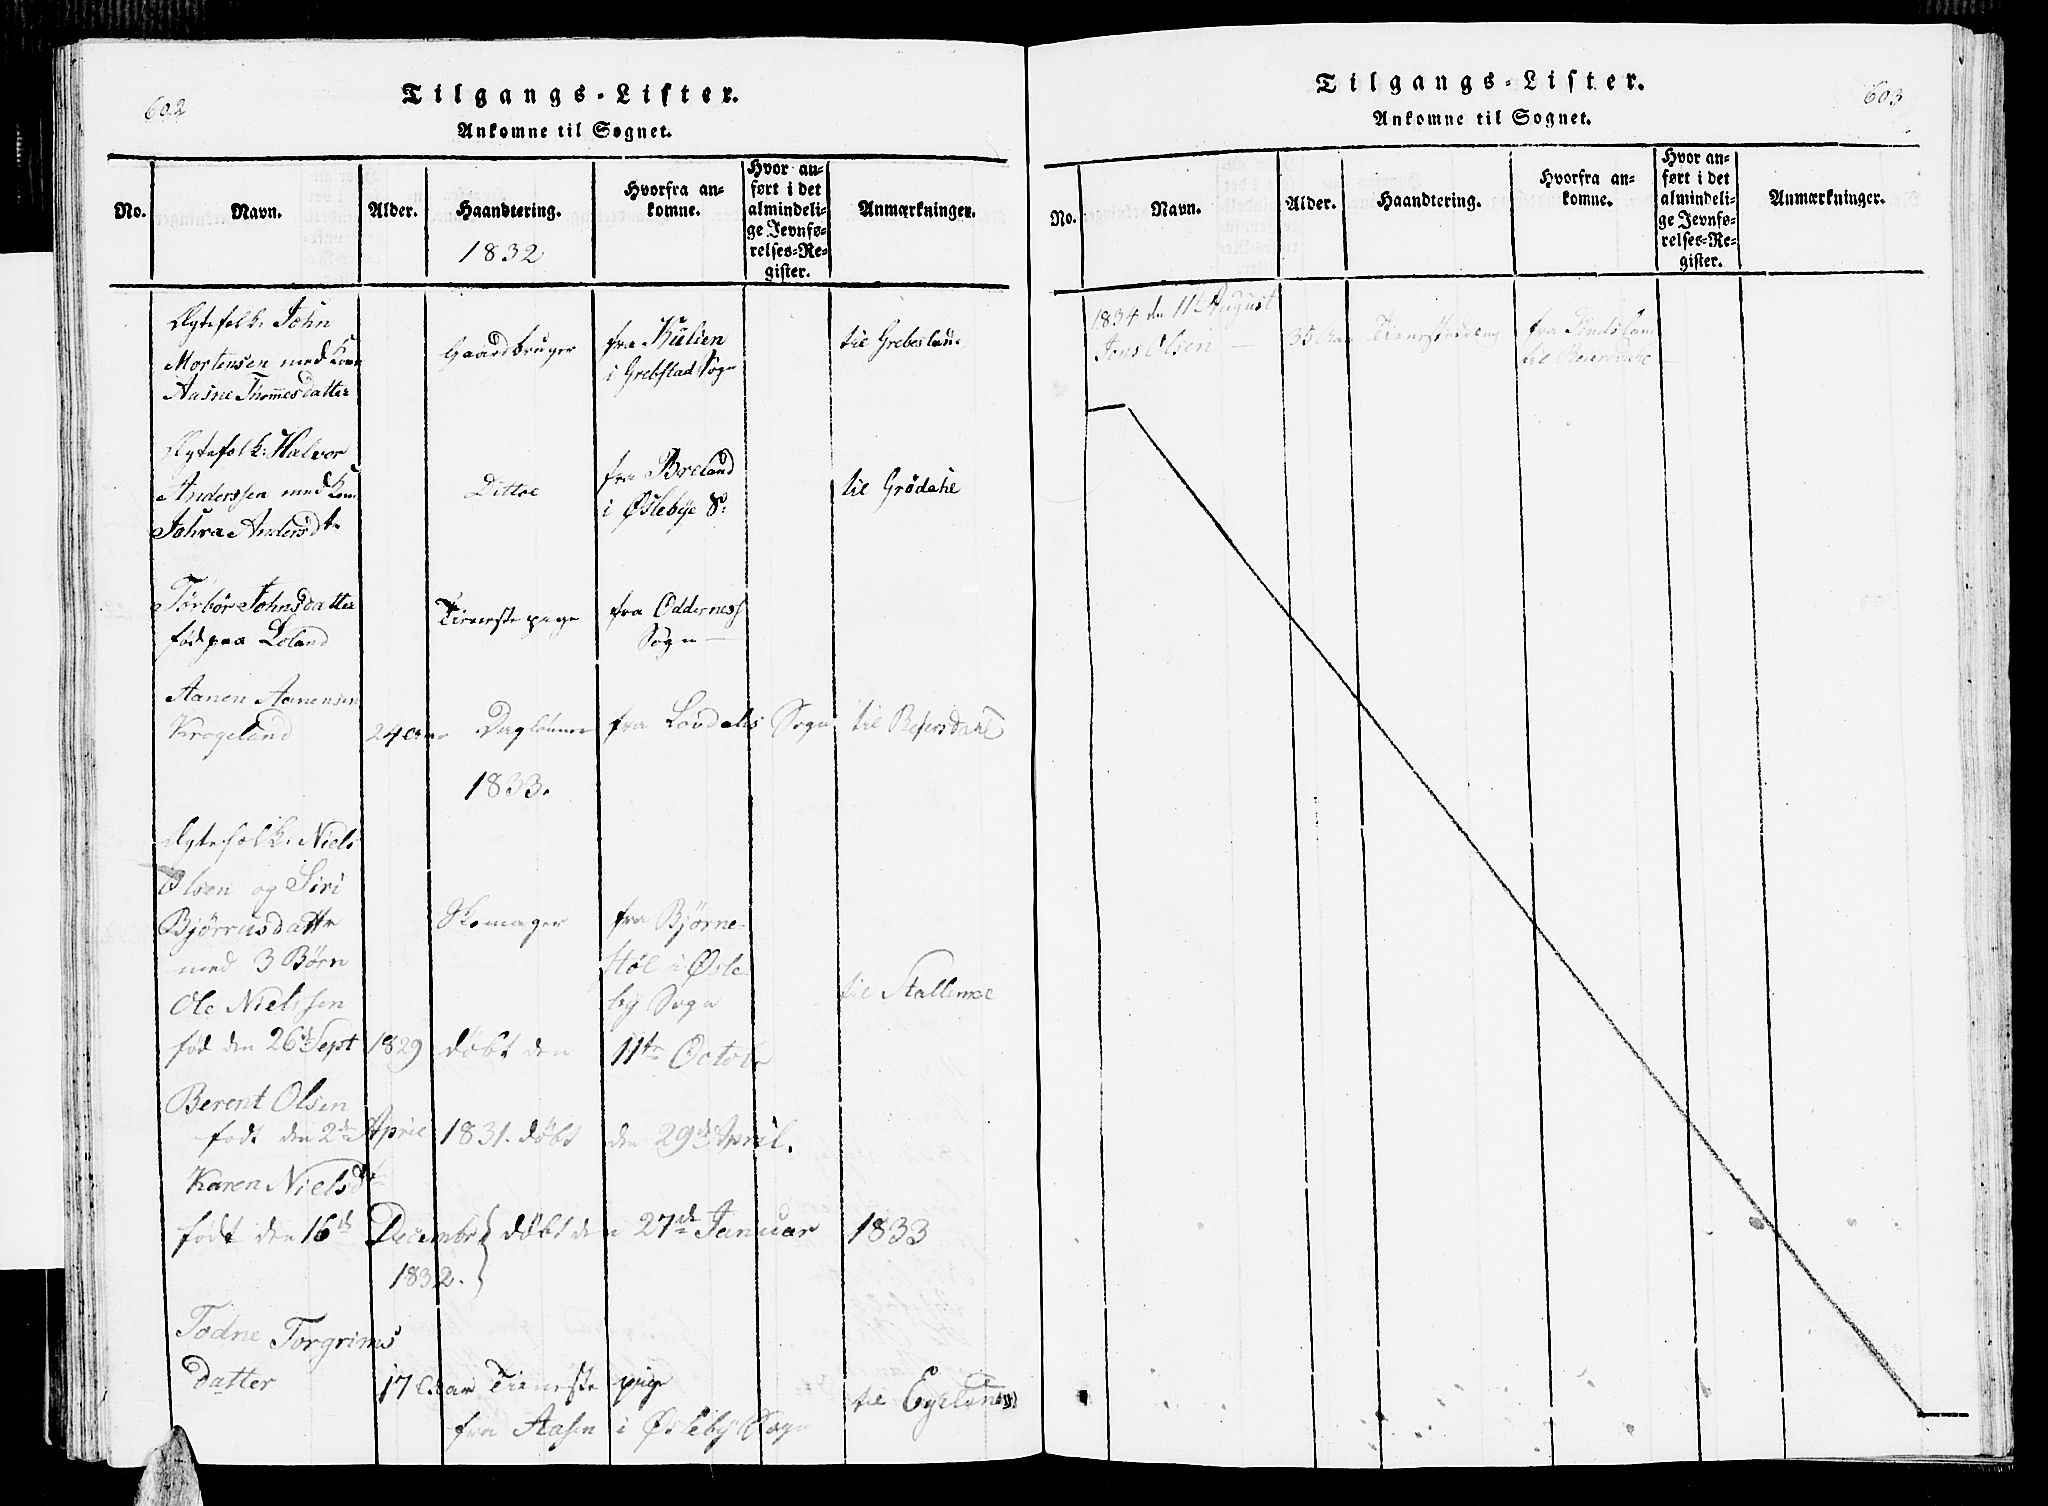 602
Tilgangs-Lister.
Ankomne til Sognet.
No.
Navn.
Alder.
Haandtering.
Hvorfra an-
komne.
Hvor an-
ført i det
almindeli-
ge Jevnfø-
relses-Re-
gister.
Anmærkninger.
1832
Ægtefolk: John
Mortensen med Kone
Aasne Thommesdatter
Gaardbruger
fra
i Grebstad Sogn
til Grebesland
Ægtefolk: Halvor
Anderssen med Kone
Johra Andersdtr
Dittoe
fra Breland
i Øslebye S:
til Grødahl
Torbor Johnsdatter
fød paa Leland
Tieneste pige
fra Oddernes
Sogn
Aanen Aanensen
Krogeland
24 Aar
Dagleinner
fra Lovdals Sogn
til Reiersdahl
1833.
Ægtefolk: Niels
Olsen og Siri
Bjørnusdattr
med 3 Børn
Skomager
fra Bjørne-
støl i Øsle
by Sogn
til Stallemoe
Ole Nielssen
fød den 26de Sept 1829 døbt den 11te Octobr
Berent Olsen
født den 2de April 1831. døbt den 29de April.
Karen Nielsdtr
født den 16de Decembr 1832. døbt den 27de Januar 1833
Todne Torgrims
datter
17 Aar
Tieneste pige
fra Aasen i Øsleby Sogn
til Egeland
603
Tilgangs-Lister.
Ankomne til Sognet.
No.
Navn.
Alder.
Haandtering.
Hvorfra an-
komne.
Hvor an-
ført i det
almindeli-
ge Jevnfø-
relses-Re-
gister.
Anmærkninger.
1834 den 11te August
Jens Olsen
35 Aar
fra
til